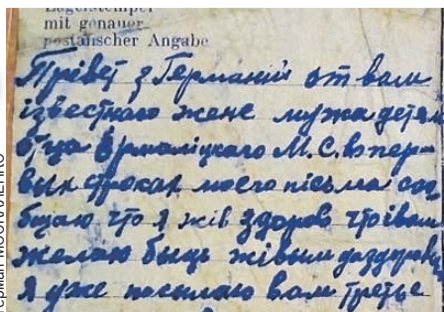 Lagerstempel
mit genauer
postalischer Angabe
Прівет з Германіи от вам
ізвестного жене мужа детям
отца Ермаліцкаго М.С. впер
вых строках моего пісьма соо
бщаю что я жів здоров что івам
желаю быць жівым да здоровы
Я уже посылаю вам третье